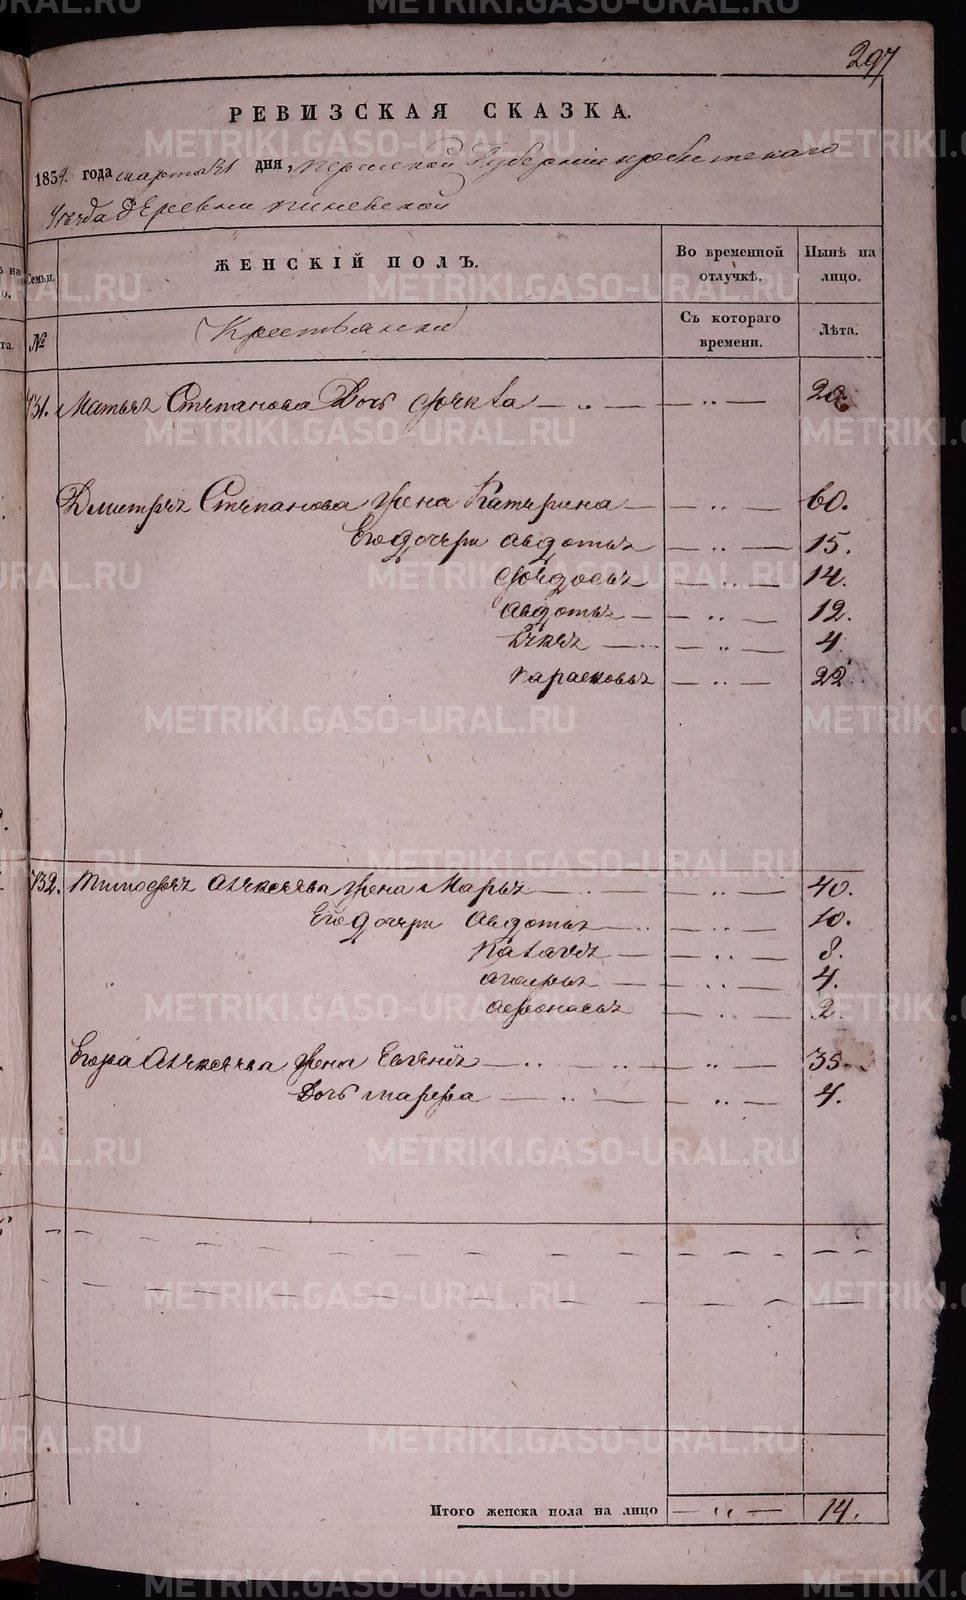 297
РЕВИЗСКАЯ СКАЗКА.
185 года марта 31 дня, Пермской Губернии Ирбитскаго
Уезда Деревни
ЖЕНСКІЙ ПОЛЪ.
Во временной отлучкѣ.
Нынѣ на лицо.
Семьи.
№
Крестьянки
Съ котораго времени.
Лѣта.
731. Матвея Степанова Дочь Фекла — „ — — „ — 20
Дмитрея Степанова жена Катерина — — „ — 60.
Его дочери Авдотья — „ — 15.
Федосья — „ — 14.
Авдотья — — „ — 12.
— „ — 4.
Парасковья — „ — 22
732. Тимофея Алексеева жена Марья — „ — „ — 40.
Его дочери Авдотья — „ — „ — 10.
— — „ — 8.
— — „ — 4.
Афонасья — „ — 2.
Егора Алексеева жена Евгения — „ — „ — — „ — 35
Дочь Марфа — „ — — „ — 4.
Итого женска пола на лицо — „ — 14.
METRIKI.GASO-URAL.RU